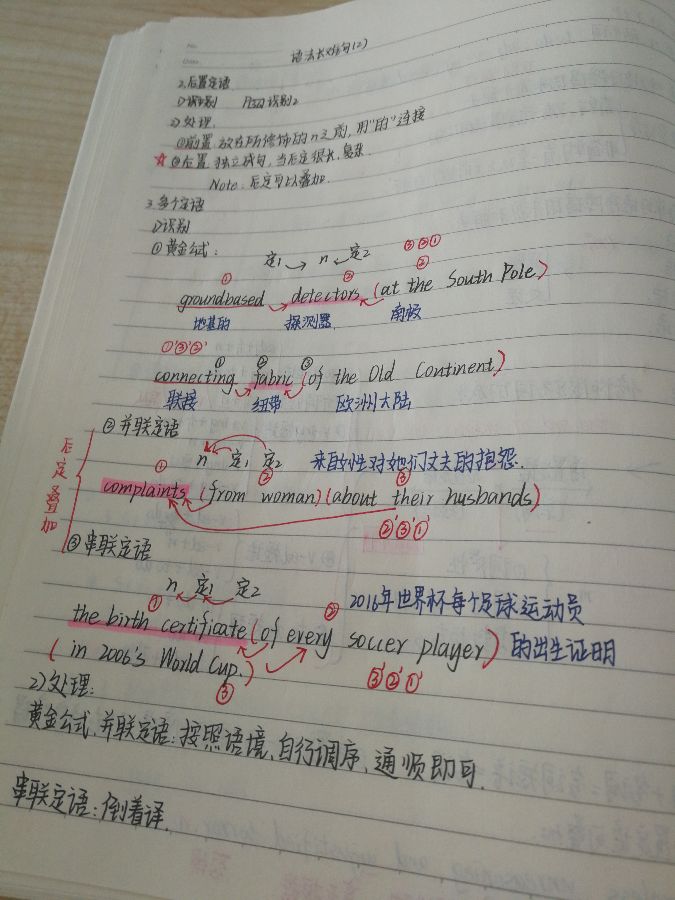 语法长难句(2)
2.后置定语
1)识别 P52识别2
2)处理.
①前置 放在所修饰的n之前, 用"的"连接
☆②后置 独立成句, 当后定很长、复杂.
Note: 后定可以叠加.
3.多个定语
1)识别
①黄金公式: 定1 n 定2 ③②①
① ② ②
groundbased detectors (at the South Pole)
地基的 探测器 南极
①'③'②'
① ② ③
connecting fabric (of the Old Continent)
联接 纽带 欧洲大陆
后定叠加
②并联定语
n 定1 定2 来自女性对她们丈夫的抱怨.
① ② ③
complaints (from woman)(about their husbands)
②'③'①'
③串联定语
n 定1 定2
① ② 2016年世界杯每个足球运动员
the birth certificate (of every soccer player) 的出生证明
(in 2006's World Cup.)
③ ③'②'①'
2)处理:
黄金公式、并联定语: 按照语境, 自行调序, 通顺即可.
串联定语: 倒着译.